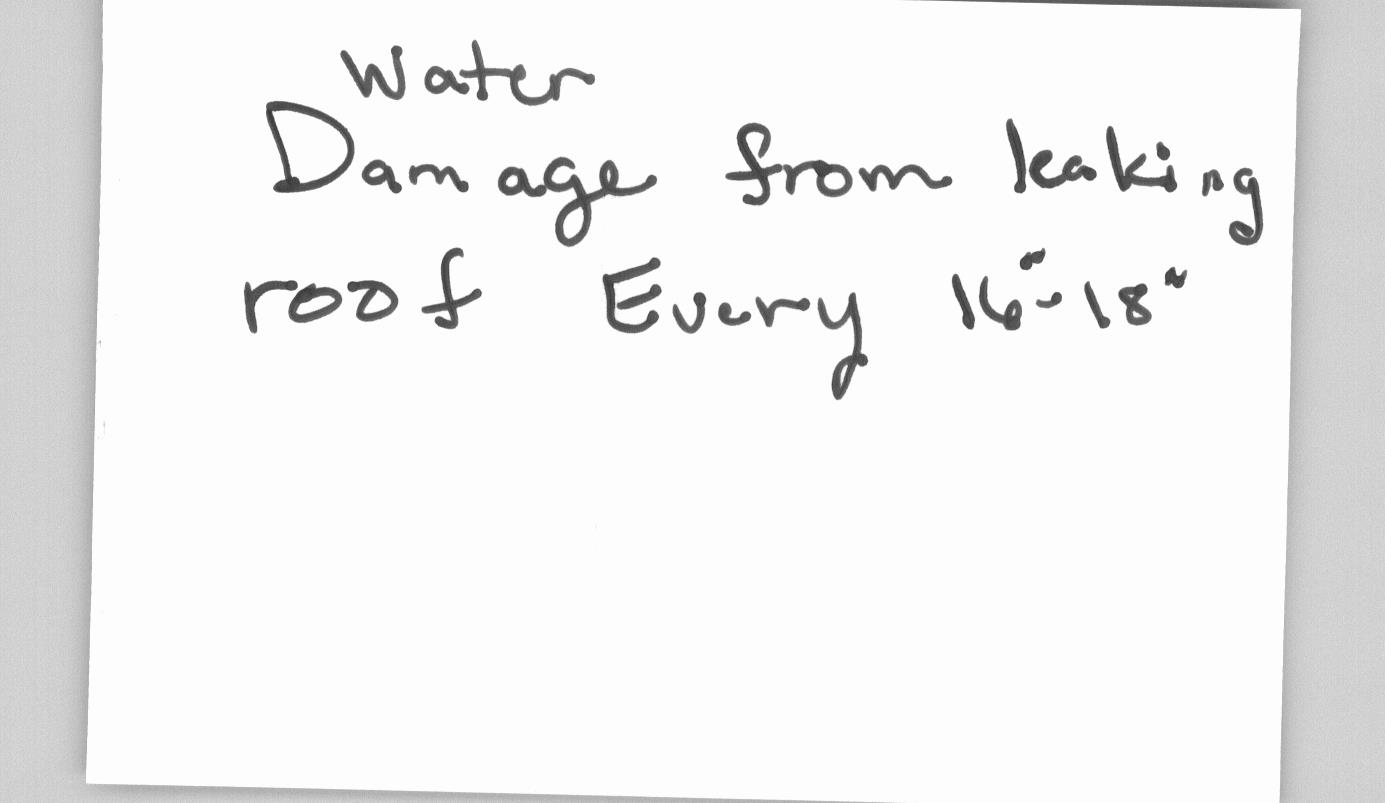 Water
Damage from leaking
roof Every 16"-18"